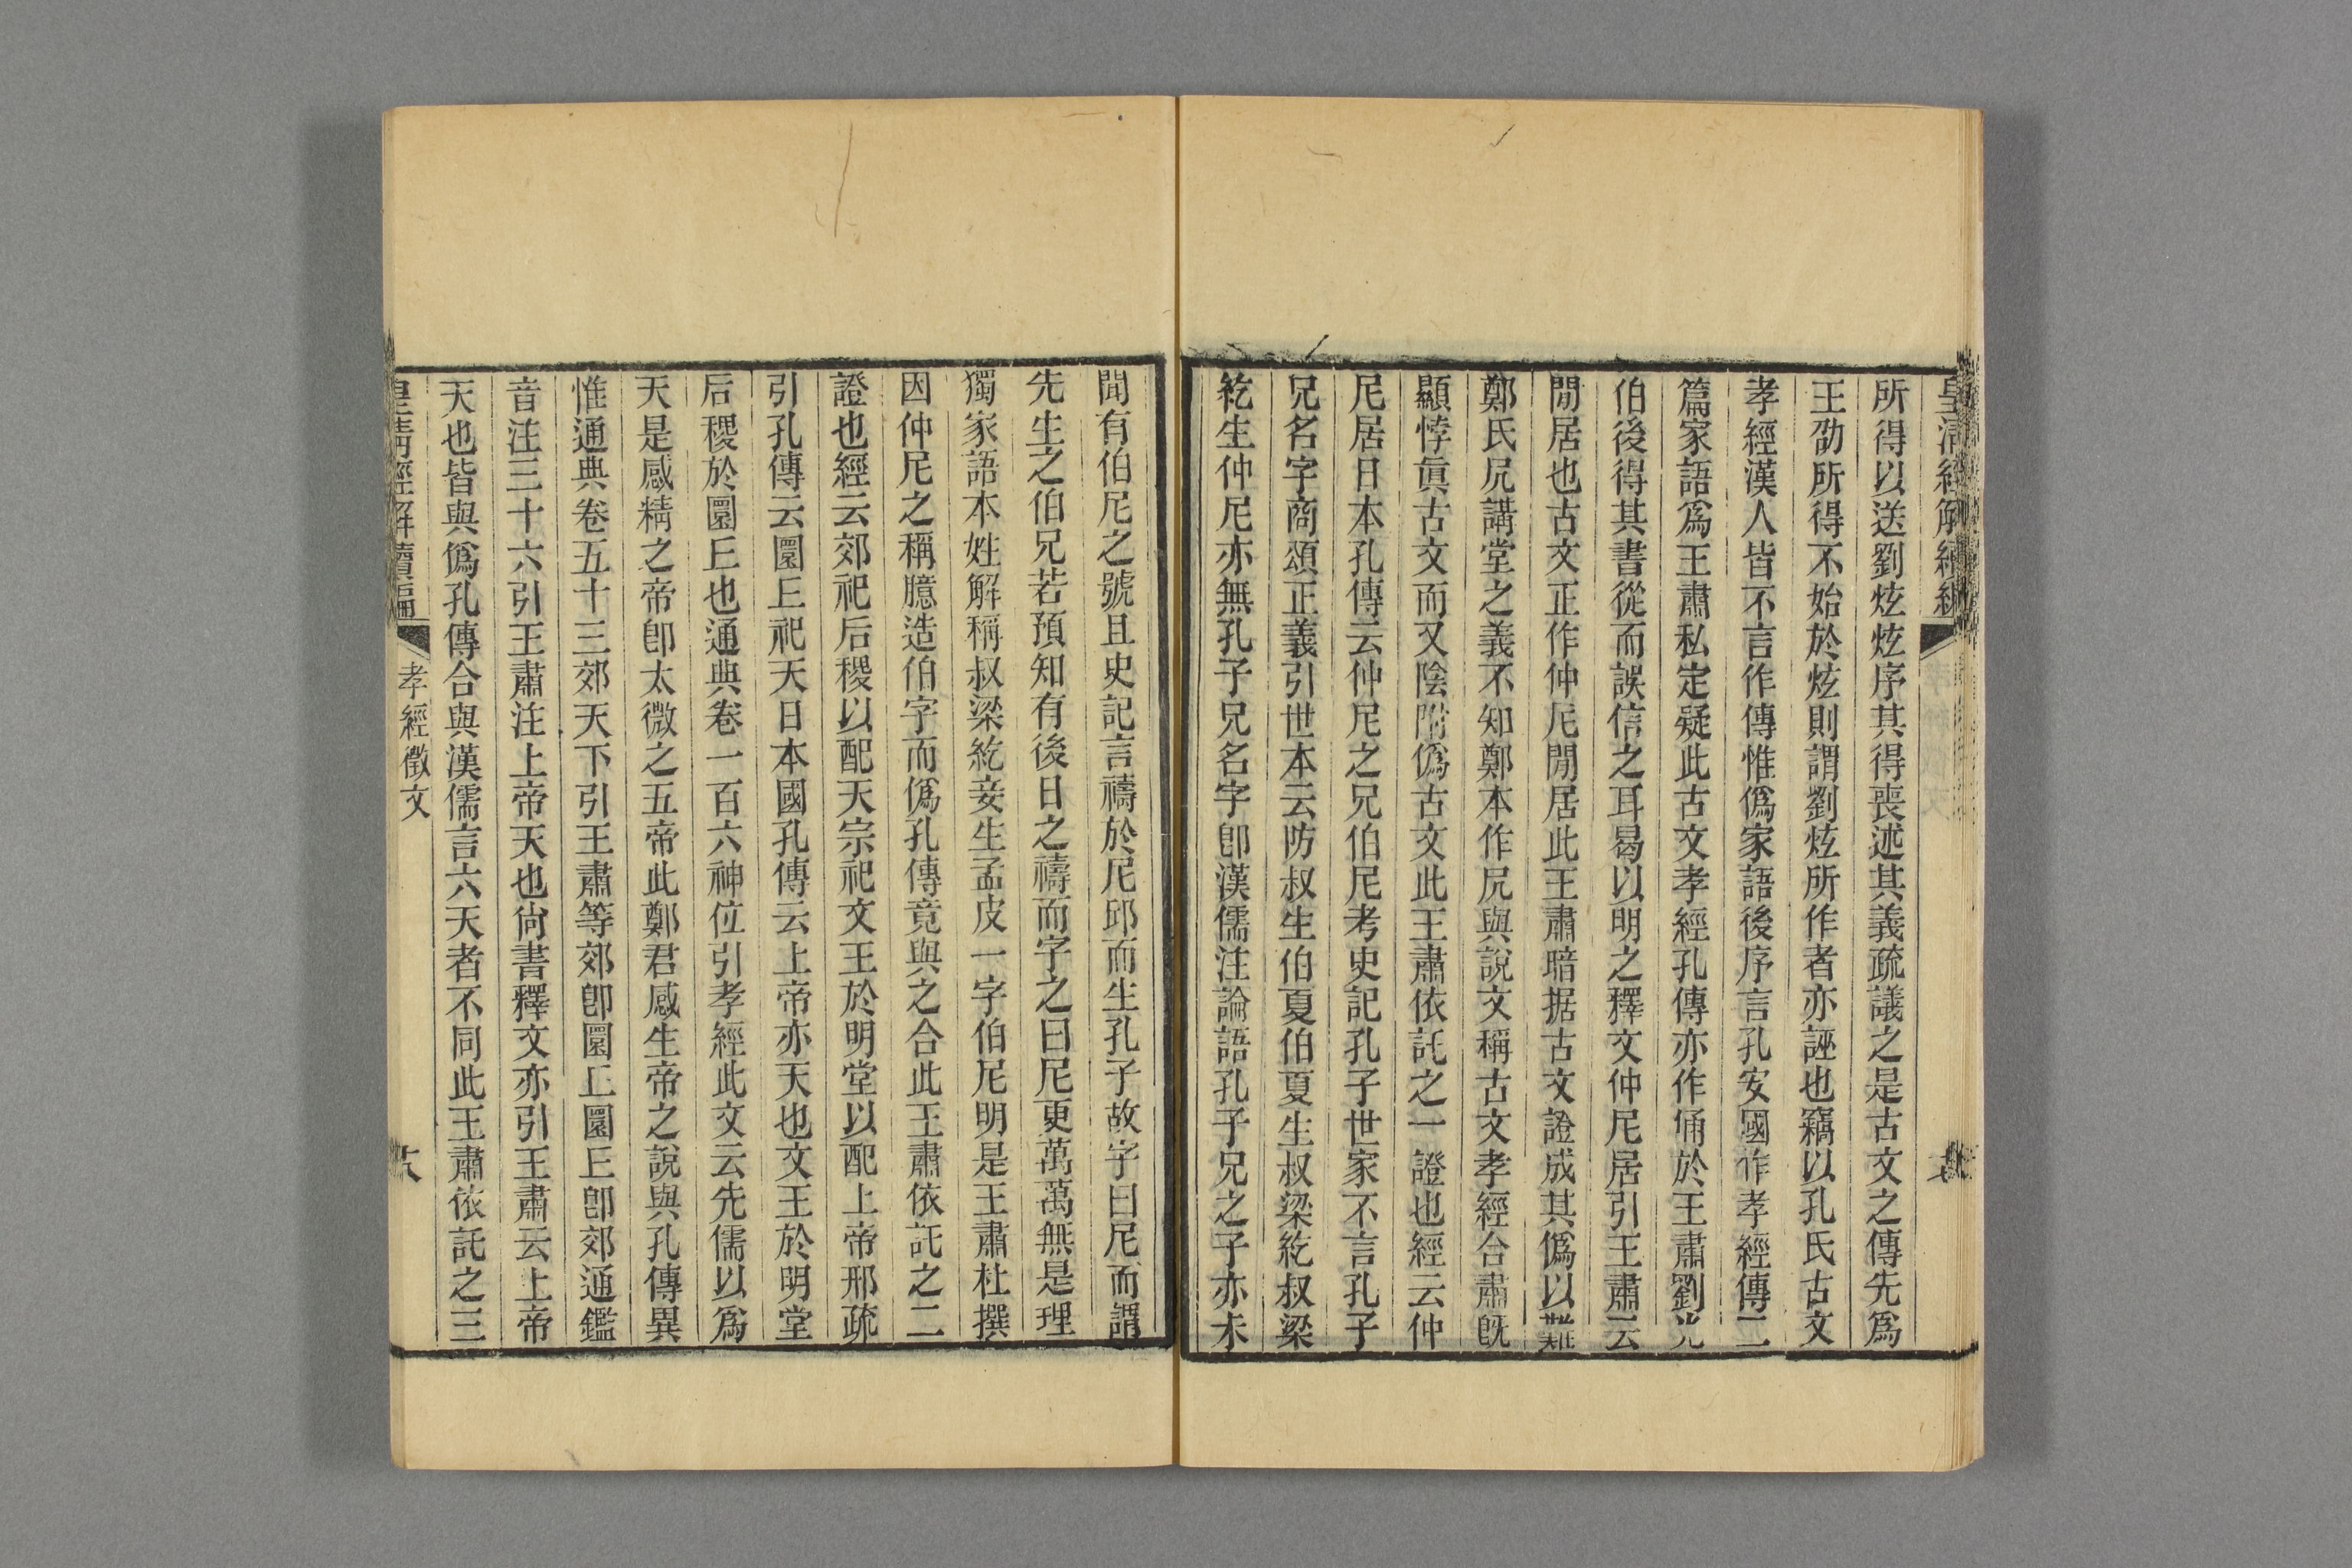 皇清經解續編
所得以送劉炫炫序其得喪述其義疏議之是古文之傳先爲
王劭所得不始於炫則謂劉炫所作者亦誣也竊以孔氏古文
孝經漢人皆不言作傳惟僞家語後序言孔安國作孝經傳二
篇家語爲王肅私定疑此古文孝經孔傳亦作俑於王肅劉光
伯後得其書從而誤信之耳曷以明之釋文仲尼居引王肅云
閒居也古文正作仲尼閒居此王肅暗据古文證成其僞以難
鄭氏凥講堂之義不知鄭本作凥與說文稱古文孝經合肅既
顯悖眞古文而又陰附僞古文此王肅依託之一證也經云仲
尼居日本孔傳云仲尼之兄伯尼考史記孔子世家不言孔子
兄名字商頌正義引世本云防叔生伯夏伯夏生叔梁紇叔梁
紇生仲尼亦無孔子兄名字卽漢儒注論語孔子兄之子亦未
聞有伯尼之號且史記言禱於尼邱而生孔子故字曰尼而謂
先生之伯兄若預知有後日之禱而字之曰尼更萬萬無是理
獨家語本姓解稱叔梁紇妾生孟皮一字伯尼明是王肅杜撰
因仲尼之稱臆造伯字而僞孔傳竟與之合此王肅依託之二
證也經云郊祀后稷以配天宗祀文王於明堂以配上帝邢疏
引孔傳云圜𠀉祀天日本國孔傳云上帝亦天也文王於明堂
后稷於圜𠀉也通典卷一百六神位引孝經此文云先儒以爲
天是感精之帝卽太微之五帝此鄭君感生帝之說與孔傳異
惟通典卷五十三郊天下引王肅等郊卽圜𠀉圜𠀉卽郊通鑑
音注三十六引王肅注上帝天也尙書釋文亦引王肅云上帝
天也皆與僞孔傳合與漢儒言六天者不同此王肅依託之三
皇清經解續編
孝經徵文